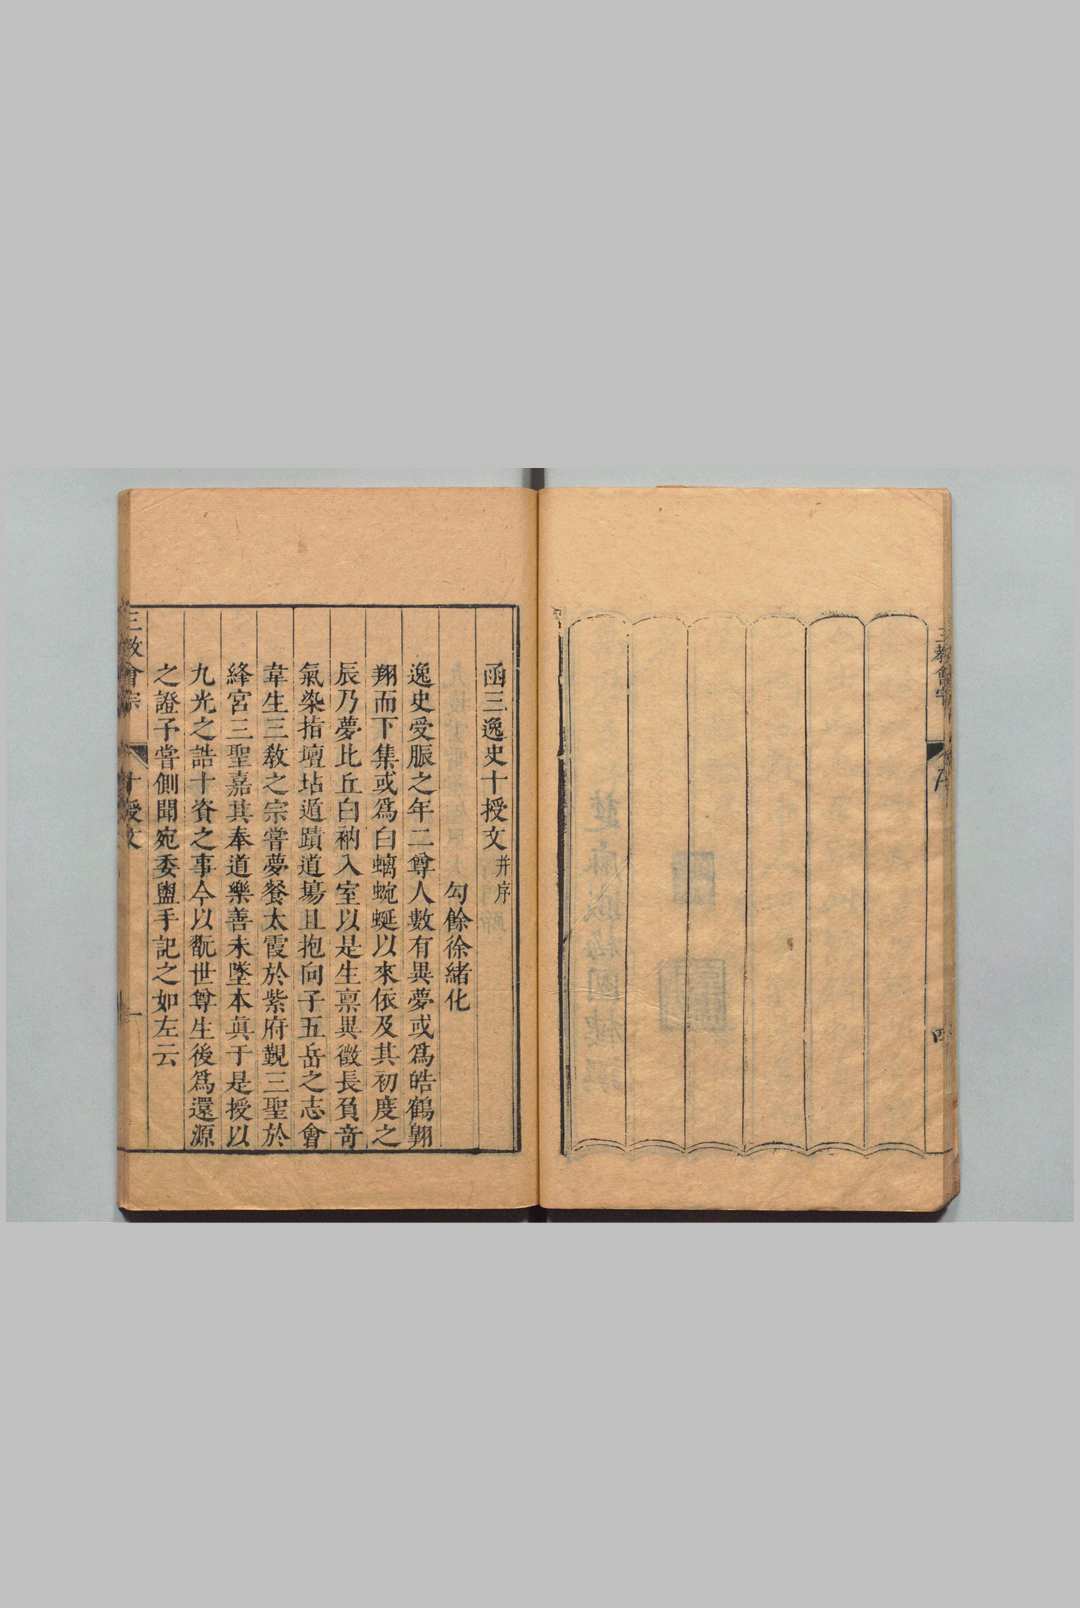 三教會宗
序
四
函三逸史十授文并序
勾餘徐緒化
逸史受脤之年二尊人數有異夢或爲皓鶴翺
翔而下集或爲白螭蜿蜒以來依及其初度之
辰乃夢比丘白衲入室以是生禀異徵長負竒
氣染指壇坫遁蹟道塲且抱向子五岳之志會
韋生三教之宗嘗夢餐太霞於紫府覲三聖於
絳宮三聖嘉其奉道樂善未墜本眞于是授以
九光之誥十資之事今以翫世尊生後爲還源
之證予嘗側聞宛委盥手記之如左云
三教會宗
十授文
一